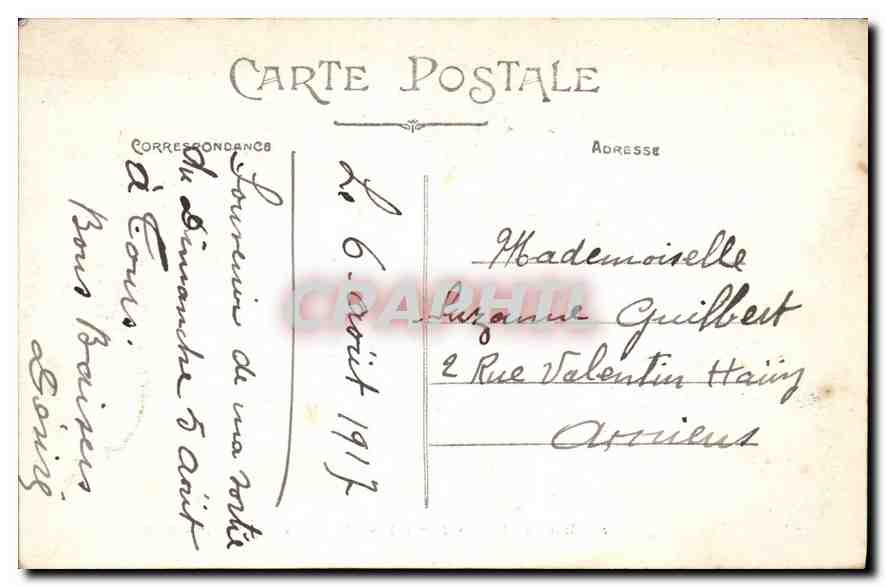 CARTE POSTALE
CORRESPONDANCE
ADRESSE
Le 6 août 1917
Souvenir de ma sortie
du Dimanche 5 août
à Tours.
Bons Baisers
Désiré
Mademoiselle
Suzanne Guilbert
2 Rue Valentin Haüy
Amiens
CPARHIL